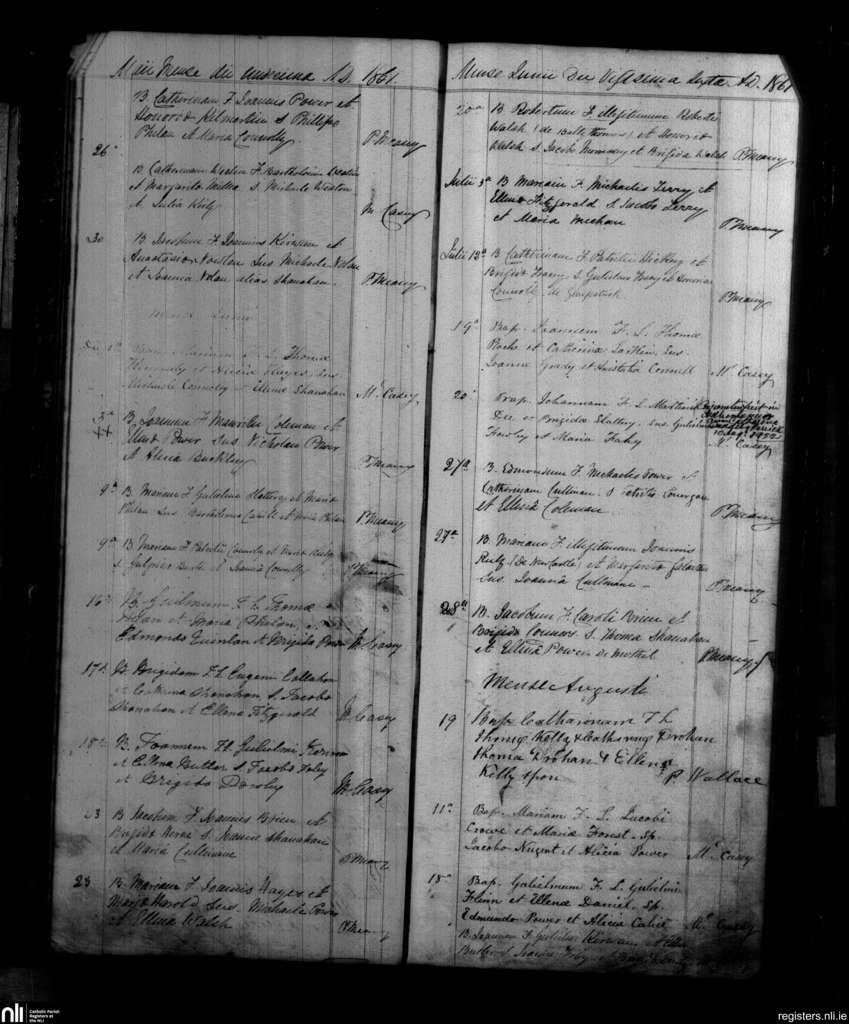 Maii Mense die undecima A.D. 1861
B. Catherinam F Joannis Power et
Honora Kilmartin S Phillipo
Phelan et Maria Connolly P Meany
26
B. Catherinam Weston F Bartholomei Weston
et Margarita S. Michaele Weston
et Julia M Casey
30 B. Jacobum F Joannis Kirwan et
Anastasia Nowlan Sus Michaele Nolan
et Joanna Nolan alias Shanahan. P Meany
Mense Junii
Mariam F. L. Thoma
Kennedy et Alicia Hayes, Sus.
Michaele Connolly et Ellena Shanahan M. Casey
3a B. Joannem F Mauritii Coleman et
Ellena Power Sus Nicholao Power
et Alicia Buckley P Meany
9a B. Mariam F Gulielmi Slattery et Maria
Phelan Sus Bartholomeo Cahill et Maria Phelan P Meany
9a B. Mariam F Patritii Connolly et
S. Burke et Joanna Connolly P Meany
16a B. Gulielmum F L Thoma
Nolan et Maria Phelan, S.
Edmundo Quinlan et Brigida Power M. Casey
17a B. Brigidam F L Eugenii Callahan
et Catherina Shanahan, S. Jacobo
Shanahan et Ellena Fitzgerald M. Casey
18a B. Joannem FL Gulielmi Kirwan
et Ellena Butler S Jacobo Foley
et Brigida M. Casey
23 B Jacobum F Joannis Brien et
Brigida S. Joanne Shanahan
et Maria Cullinane P Meany
23 B. Mariam F Joannis Hayes et
Maria Harold Sus. Michaele Power
et Ellena Walsh P Meany
Mense Junii Die Vigesima Sexta A.D. 1861
20a B Robertum F. illegitimum Roberti
Walsh (de Ballythomas) et Honora
Walsh S Jacobo et Brigida Walsh P Meany
Julii 5a B Mariam F. Michaelis Terry et
Ellena Fitzgerald S Jacobo Terry
et Maria Meehan P Meany
Julii 13a B Catherinam F Patritii Hickey et
Brigida S. Gulielmo et
Connolly de P Meany
19a Bap. Joannem F. L. Thoma
Roche et Catherina Sus.
Joanne Grady et Anastatia Connell M. Casey
20a Bap. Johannam F. L. Matthaei
Dee et Brigida Slattery, Sus. Gulielmo
et Maria Fahy M. Casey
27a B. Edmundum F. Michaelis Power et
Catherinam Cullinan S Patritio Lonergan
et Ellena Coleman P Meany
27a B. Mariam F illegitimum Joannis
(de Newcastle) et Margarita
Sus. Joanna Cullinane P Meany
28a B. Jacobum F. Caroli Brien et
Brigida Connors S. Thoma Shanahan
et Ellena Power de Mothel P Meany
Mense Augusti
19 Bap. Catharinam F L
Thoma Kelly & Catharina Drohan
Thoma Drohan & Ellena
Kelly spon P. Wallace
11a Bap. Mariam F. L. Jacobi
Crowe et Maria Forest. Sp.
Jacobo Nugent et Alicia Power M. Casey
18a Bap. Gulielmum F. L. Gulielmi
Flinn et Ellena Daniel. Sp.
Edmundo Power et Alicia Cahill M. Casey
B. Joannem F. Gulielmi Kirwan et Ellena
Butler S Jacobo Foley et
nli Catholic Parish
Registers at
the NLI
registers.nli.ie